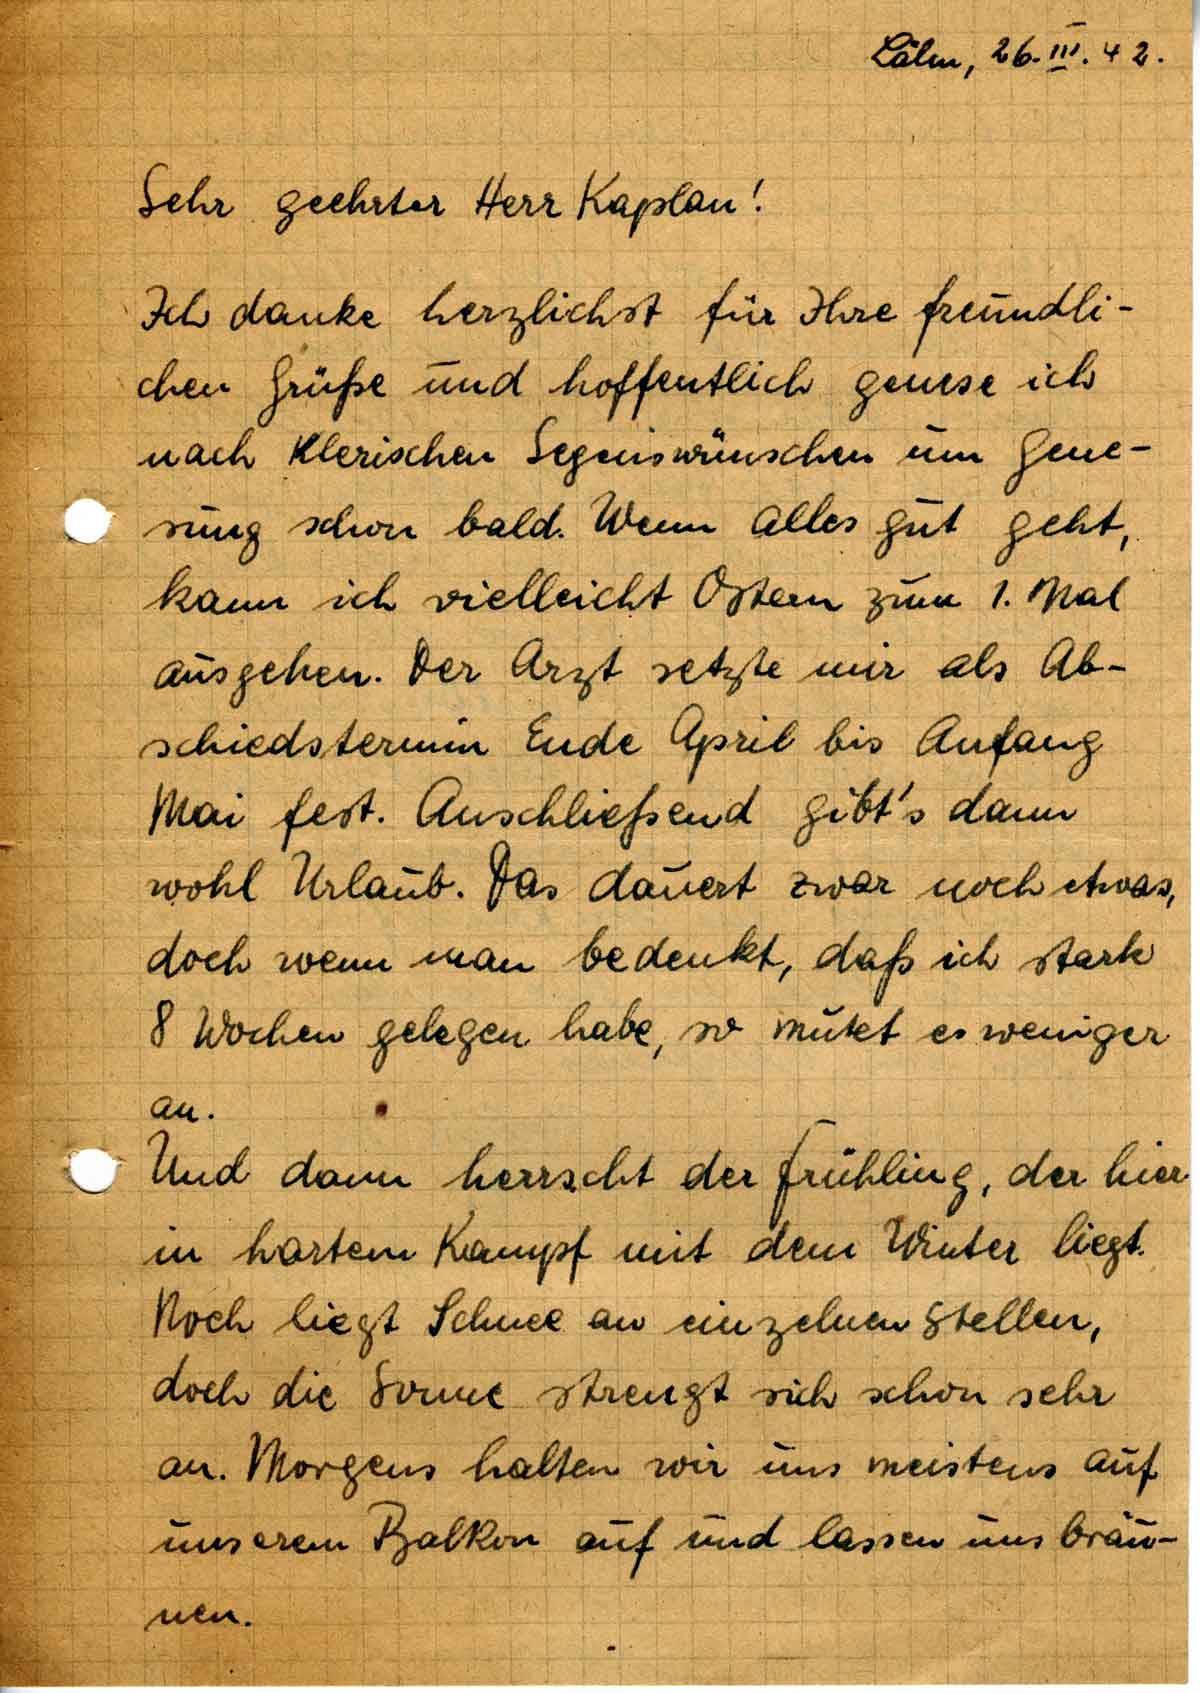 Lähn, 26. III. 42.
Sehr geehrter Herr Kaplan!
Ich danke herzlichst für Ihre freundli-
chen Grüße und hoffentlich genese ich
nach klerischen Segenswünschen um Gene-
sung schon bald. Wenn alles gut geht,
kann ich vielleicht Ostern zum 1. Mal
ausgehen. Der Arzt setzte mir als Ab-
schiedstermin Ende April bis Anfang
Mai fest. Anschließend gibt's dann
wohl Urlaub. Das dauert zwar noch etwas,
doch wenn man bedenkt, daß ich stark
8 Wochen gelegen habe, so mutet es weniger
an.
Und dann herrscht der Frühling, der hier
in hartem Kampf mit dem Winter liegt.
Noch liegt Schnee an einzelnen Stellen,
doch die Sonne strengt sich schon sehr
an. Morgens halten wir uns meistens auf
unserem Balkon auf und lassen uns bräu-
nen.